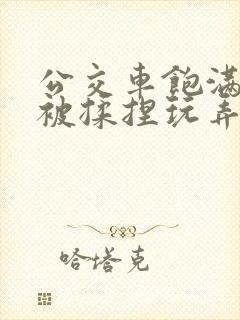 公交車飽滿
被揉捏玩弄
哈塔克